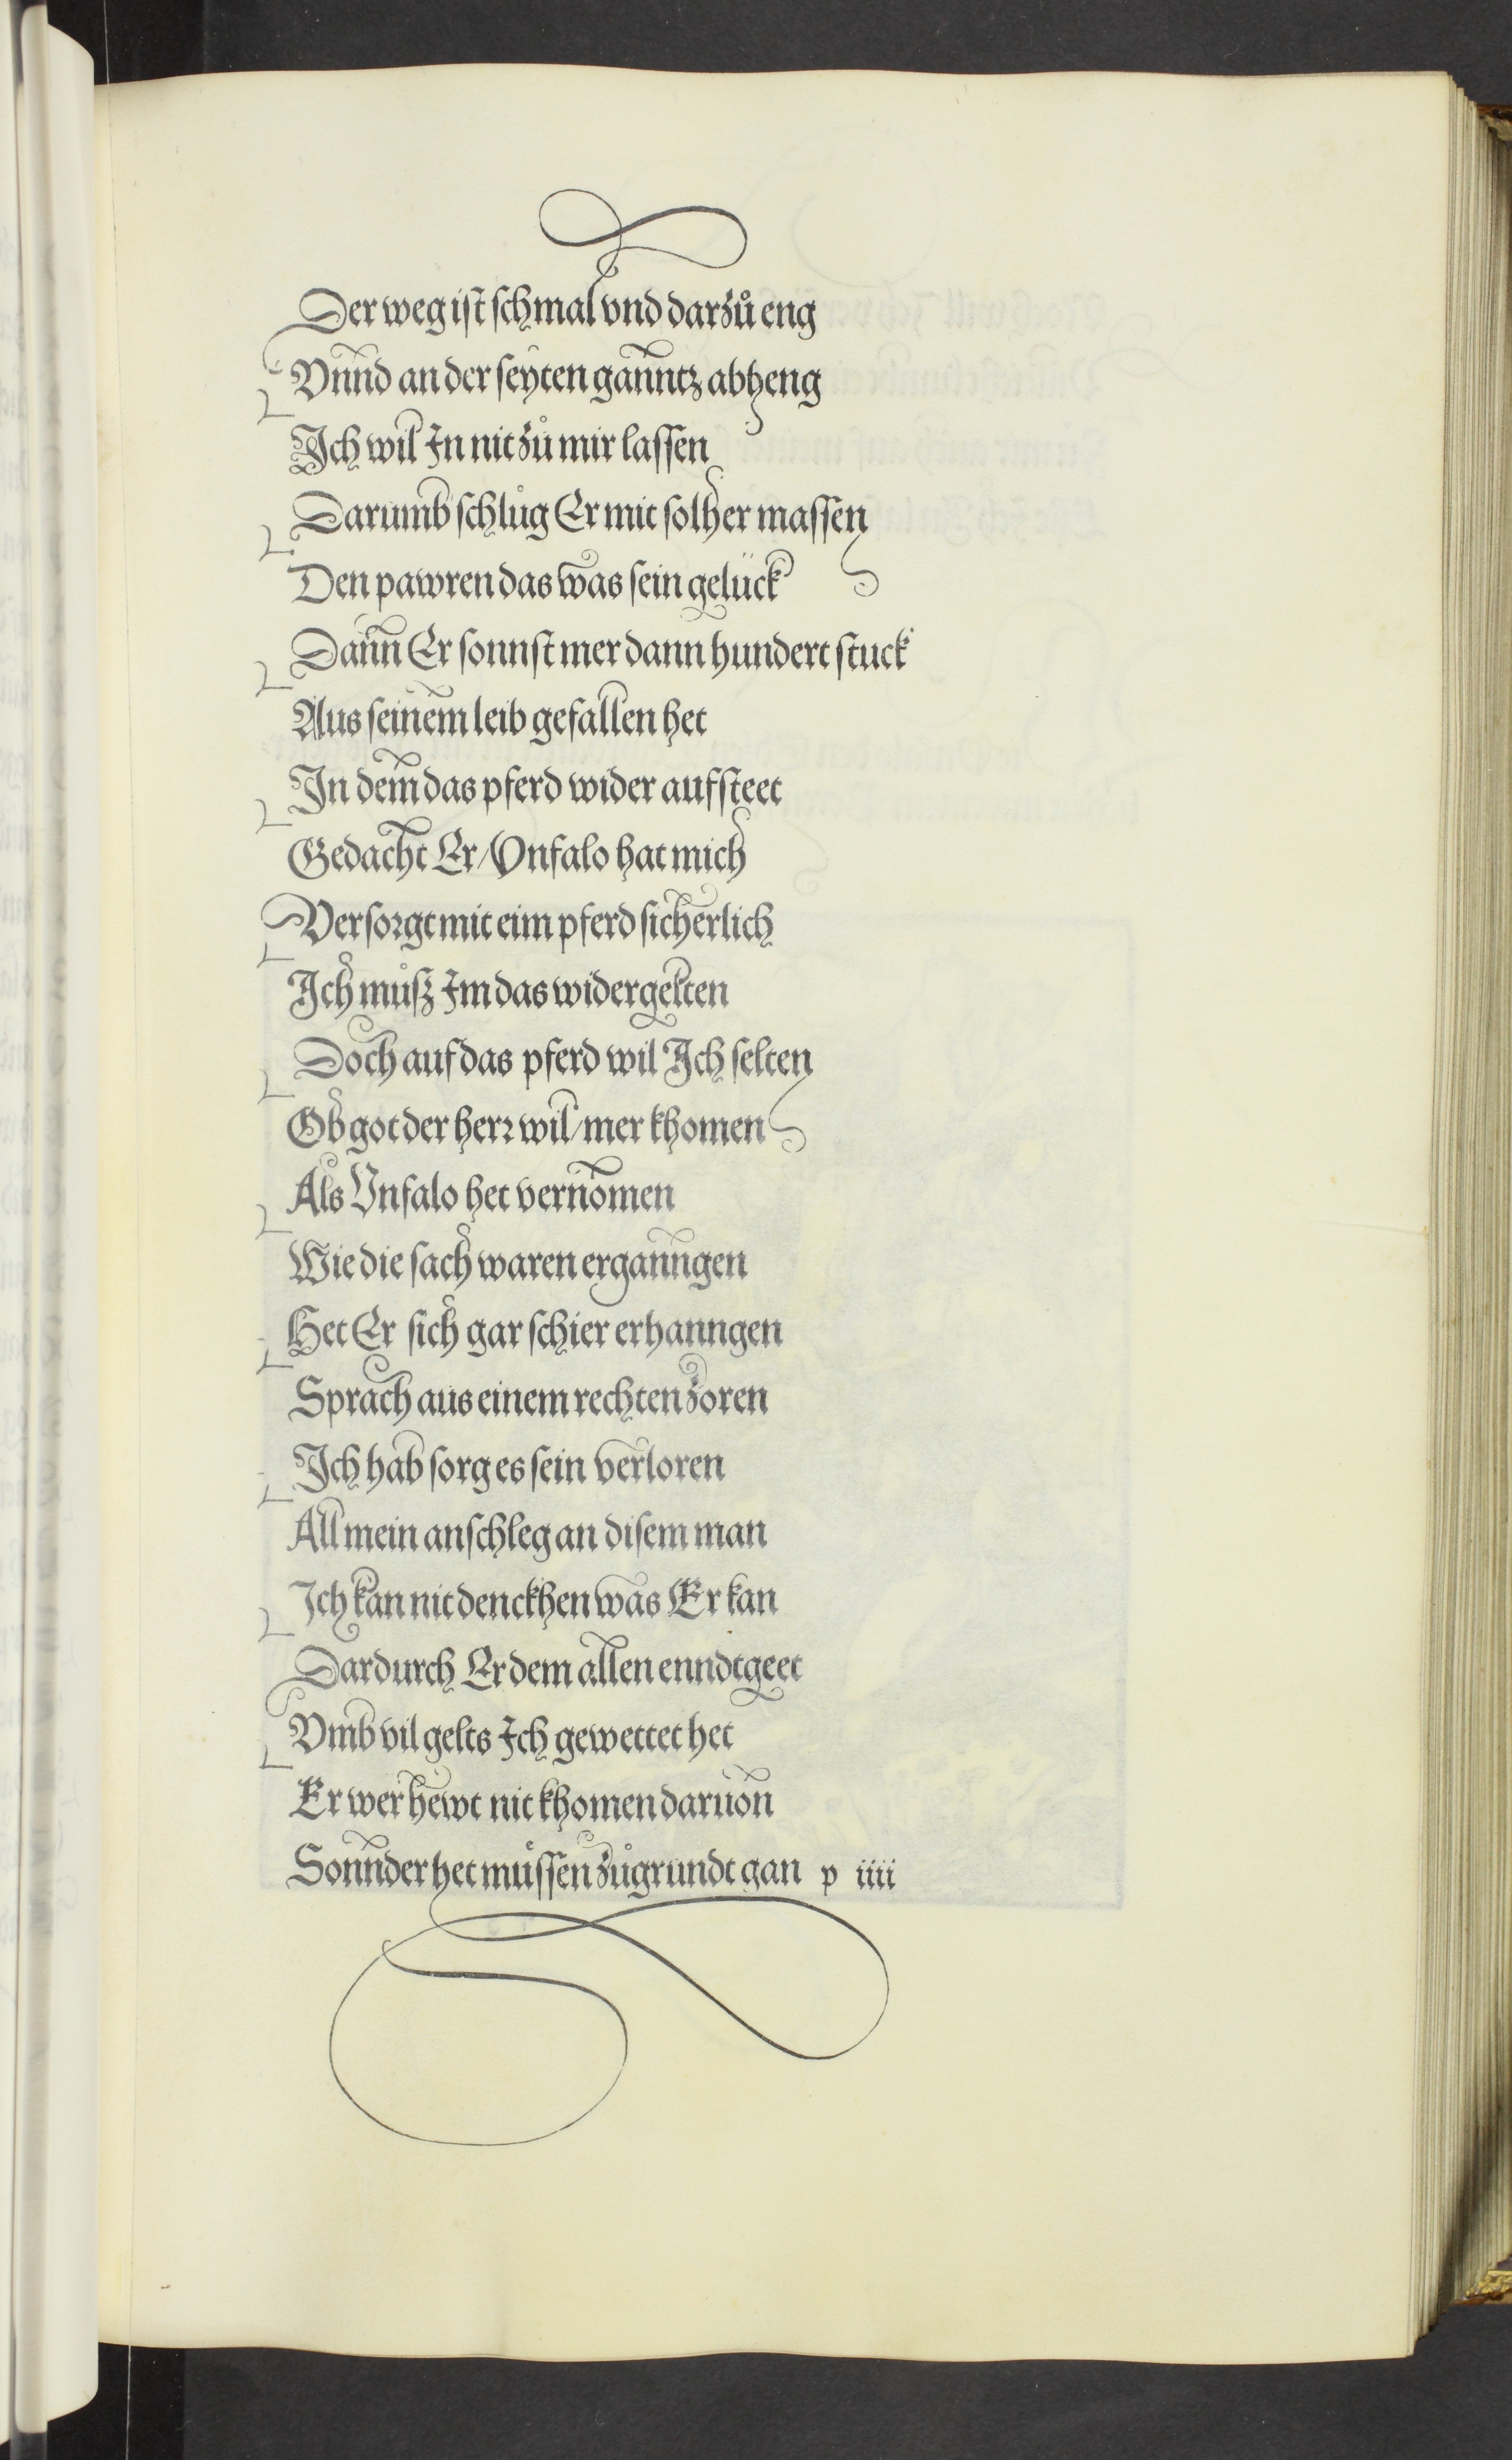 Der weg ist schmal vnd darzů eng
Vnnd an der seyten ganntz abheng
Ich wil In nit zů mir lassen
Darumb schlůg Er mit solher massen
Den pawren das was sein gelück
Dann Er sonnst mer dann hundert stuck
Aus seinem leib gefallen het
In dem das pferd wider aufsteet
Gedacht Er/Vnfalo hat mich
Versorgt mit eim pferd sicherlich
Ich můsz Im das widergelten
Doch auf das pferd wil Ich selten
Ob got der herr wil/mer khomen
Als Vnfalo het vernomen
Wie die sach waren erganngen
Het Er sich gar schier erhanngen
Sprach aus einem rechten zoren
Ich hab sorg es sein verloren
All mein anschleg an disem man
Ich kan nit denckhen was Er kan
Dardurch Er dem allen enndtgeet
Vmb vil gelts Ich gewettet het
Er wer hewt nit khomen daruon
Sonnder het můssen zůgrundt gan p iiii